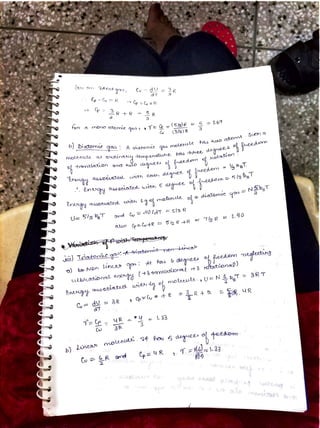 Cv = dU/dT = 3/2 R
Cp - Cv = R ⇒ Cp = Cv + R
⇒ Cp = 3/2 R + R = 5/2 R
For a mono atomic gas, γ = Cp/Cv = (5/2)R/(3/2)R = 5/3 = 1.67
b) Diatomic gas: A diatomic gas molecule has two atoms.
molecule at ordinary temperature has three degrees of freedom
of translation and two degrees of freedom of rotation.
Energy associated with each degree of freedom = 1/2 KBT
∴ Energy associated with 5 degree of freedom = 5/2 KBT
Energy associated with 1g of molecule of a diatomic gas = N 5/2 KBT
U = 5/2 RT and Cv = dU/dT = 5/2 R
also Cp = Cv + R = 5/2 R + R = 7/2 R
Variation of with Temperature
iii) Triatomic gas:
a) Non linear gas: It has 6 degrees of freedom neglecting
vibrational energy (3 translational + 3 rotational)
Energy associated with 1g of molecule, U = N 6/2 KBT = 3RT
Cv = dU/dT = 3R, Cp = Cv + R = 4R
γ = Cp/Cv = 4R/3R = 4/3 = 1.33
b) Linear molecule: It has degree of freedom
and Cp = 4R, γ = = 1.33